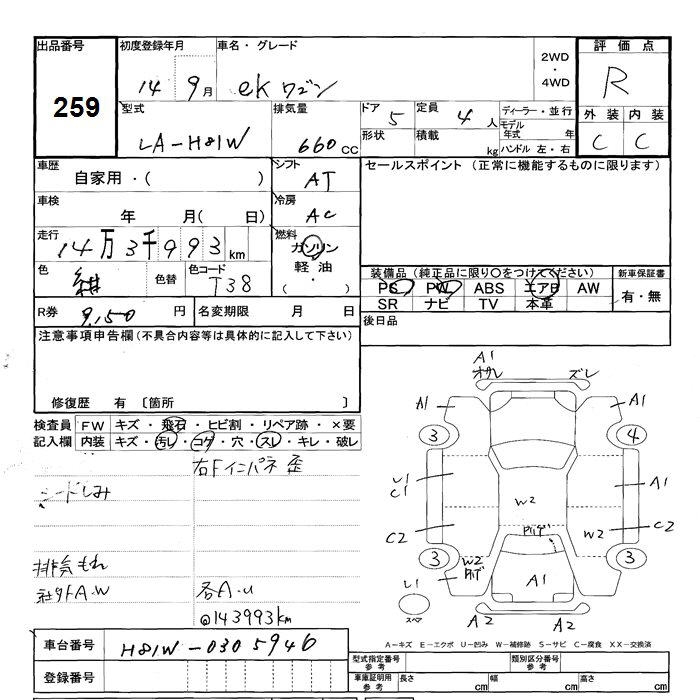 出品番号
259
初度登録年月
14 9月
車名・グレード
ekワゴン
2WD
・
4WD
評価点
R
外装 内装
C C
型式
LA-H81W
排気量
660cc
ドア 5
形状
定員 4人
積載 kg
ディーラー・並行
モデル年式 年
ハンドル 左・右
車歴
自家用・( )
シフト
AT
車検
年 月( 日)
冷房
AC
走行
14万3千993km
燃料
ガソリン
軽油
( ・ )
色
紺
色替
色コード
T38
R券 9,150円
名変期限 月 日
セールスポイント (正常に機能するものに限ります)
装備品 (純正品に限り○をつけてください)
PS PW ABS エアB AW
SR ナビ TV 本革
新車保証書
有・無
後日品
注意事項申告欄(不具合内容等は具体的に記入して下さい)
修復歴 有 〔箇所 〕
検査員記入欄
FW キズ・飛石・ヒビ割・リペア跡・×要
内装 キズ・汚レ・コゲ・穴・スレ・キレ・破レ
右Fインパネ歪
シートしみ
排気もれ
社外A.W
各A.U
@143993km
車台番号
H81W-0305946
登録番号
A1
オサレ ズレ
A1 A1
3 4
U1
C1
A1
W2
C2
W2
C2
3 3
W2
A1
U1
スペア
A2 A2
A-キズ E-エクボ U-凹み W-補修跡 S-サビ C-腐食 XX-交換済
型式指定番号
参考
類別区分番号
参考
車庫証明用
参考
長さ cm
幅 cm
高さ cm